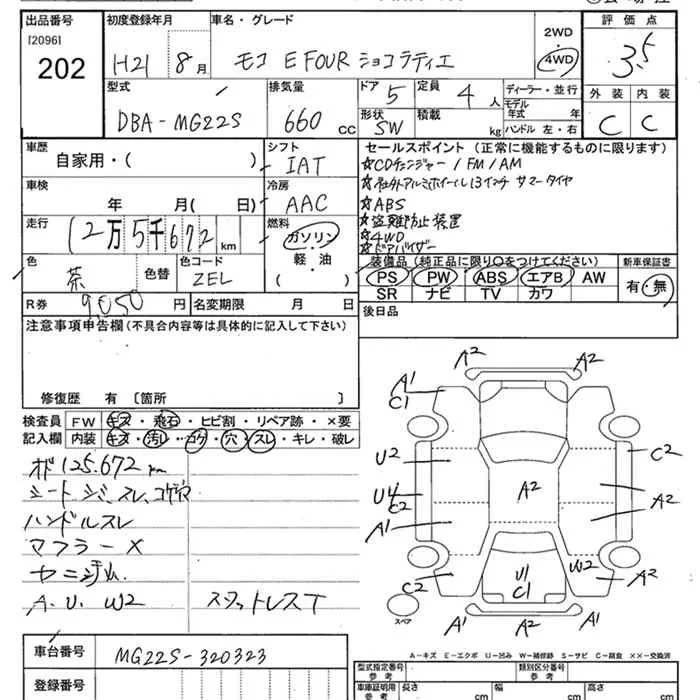 出品番号 初度登録年月 車名・グレード 評価点
[2096]
202
H21 8月 モコ E FOUR ショコラティエ 2WD 4WD 3.5
型式 排気量 ドア 定員 ディーラー・並行 外装 内装
DBA-MG22S 660 cc 5 4人 モデル年式 年 C C
形状 SW 積載 kg ハンドル 左・右
車歴 シフト セールスポイント(正常に機能するものに限ります)
自家用・( ) IAT
☆CDチェンジャー/FM/AM
☆社外アルミホイール13インチ サマータイヤ
車検 冷房
年 月( 日) AAC
☆ABS
☆盗難防止装置
☆4WD
☆ドアバイザー
走行 燃料
12万5千672 km ガソリン
軽・油
( )
色 色替 色コード
茶 ZEL
装備品(純正品に限り○をつけてください) 新車保証書
PS PW ABS エアB AW 有・無
SR ナビ TV カワ
R券 9,050 円 名変期限 月 日
後日品
注意事項申告欄(不具合内容等は具体的に記入して下さい)
修復歴 有 [箇所 ]
検査員 FW キズ・飛石・ヒビ割・リペア跡・×要
記入欄 内装 キズ・汚レ・コゲ・穴・スレ・キレ・破レ
125.672 km
ハンドルスレ
マフラー×
A.U.W2
A2 A2
A1
C1
U2 C2
A2
C2 A2
A1
C2 W2 A2
U1
C1
スペア A1 A1
A-キズ E-エクボ U-凹み W-補修跡 S-サビ C-腐食 ××-交換済
車台番号 MG22S-320323
登録番号
型式指定番号 参考 類別区分番号 参考
車庫証明用 参考 長さ cm 幅 cm 高さ cm